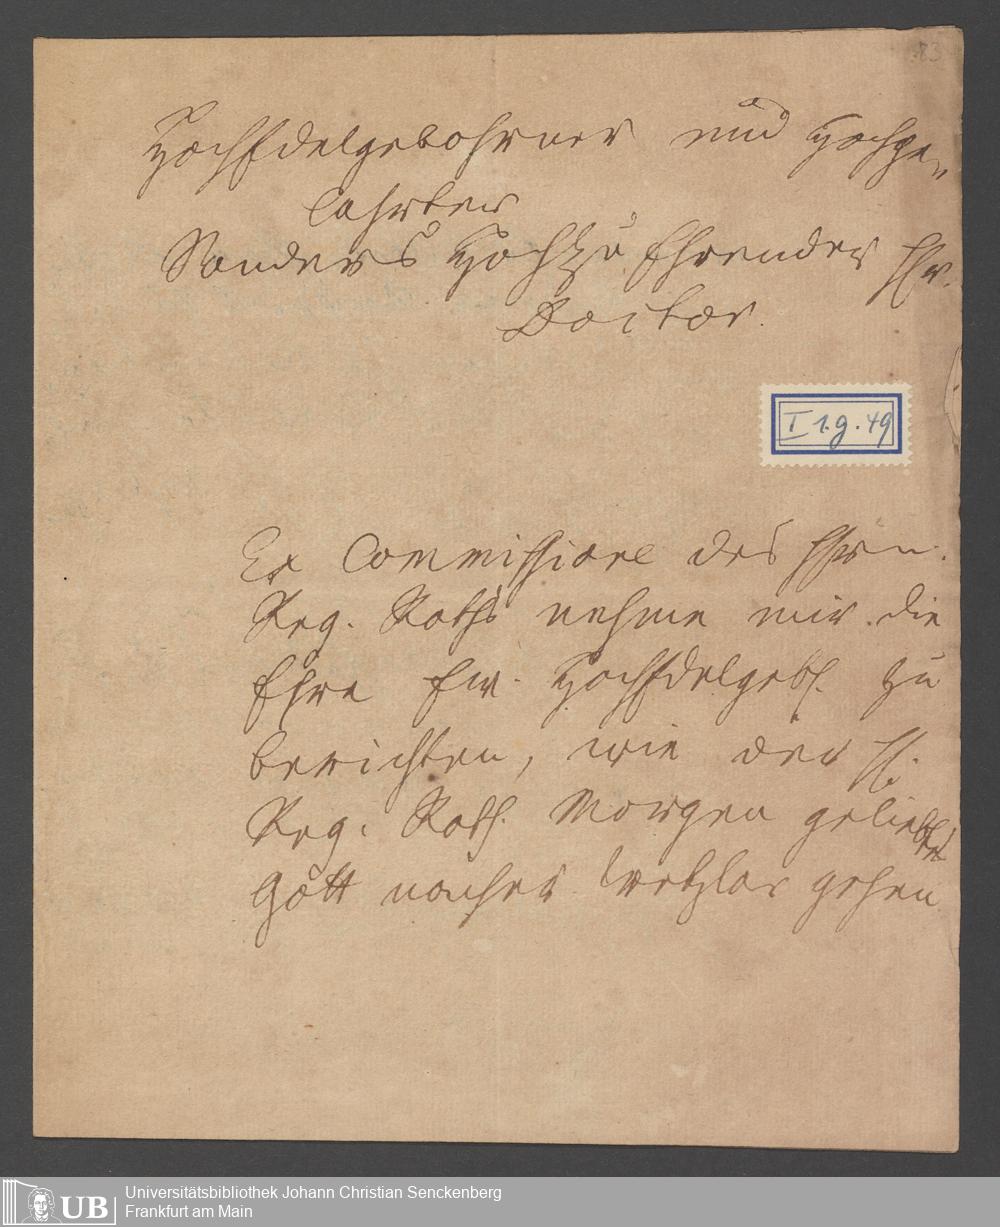 83
HochEdelgebohrner und Hochge-
lahrter
Sonders HochzuEhrender Hr.
Doctor.
I 1.g.49
Ex Commissione des Hhrn.
Reg. Raths nehme mir die
Ehre Ew. HochEdelgeb. zu
berichten, wie der H.
Reg. Rath. Morgen geliebts
Gott nacher Wetzlar gehen
UB
Universitätsbibliothek Johann Christian Senckenberg
Frankfurt am Main